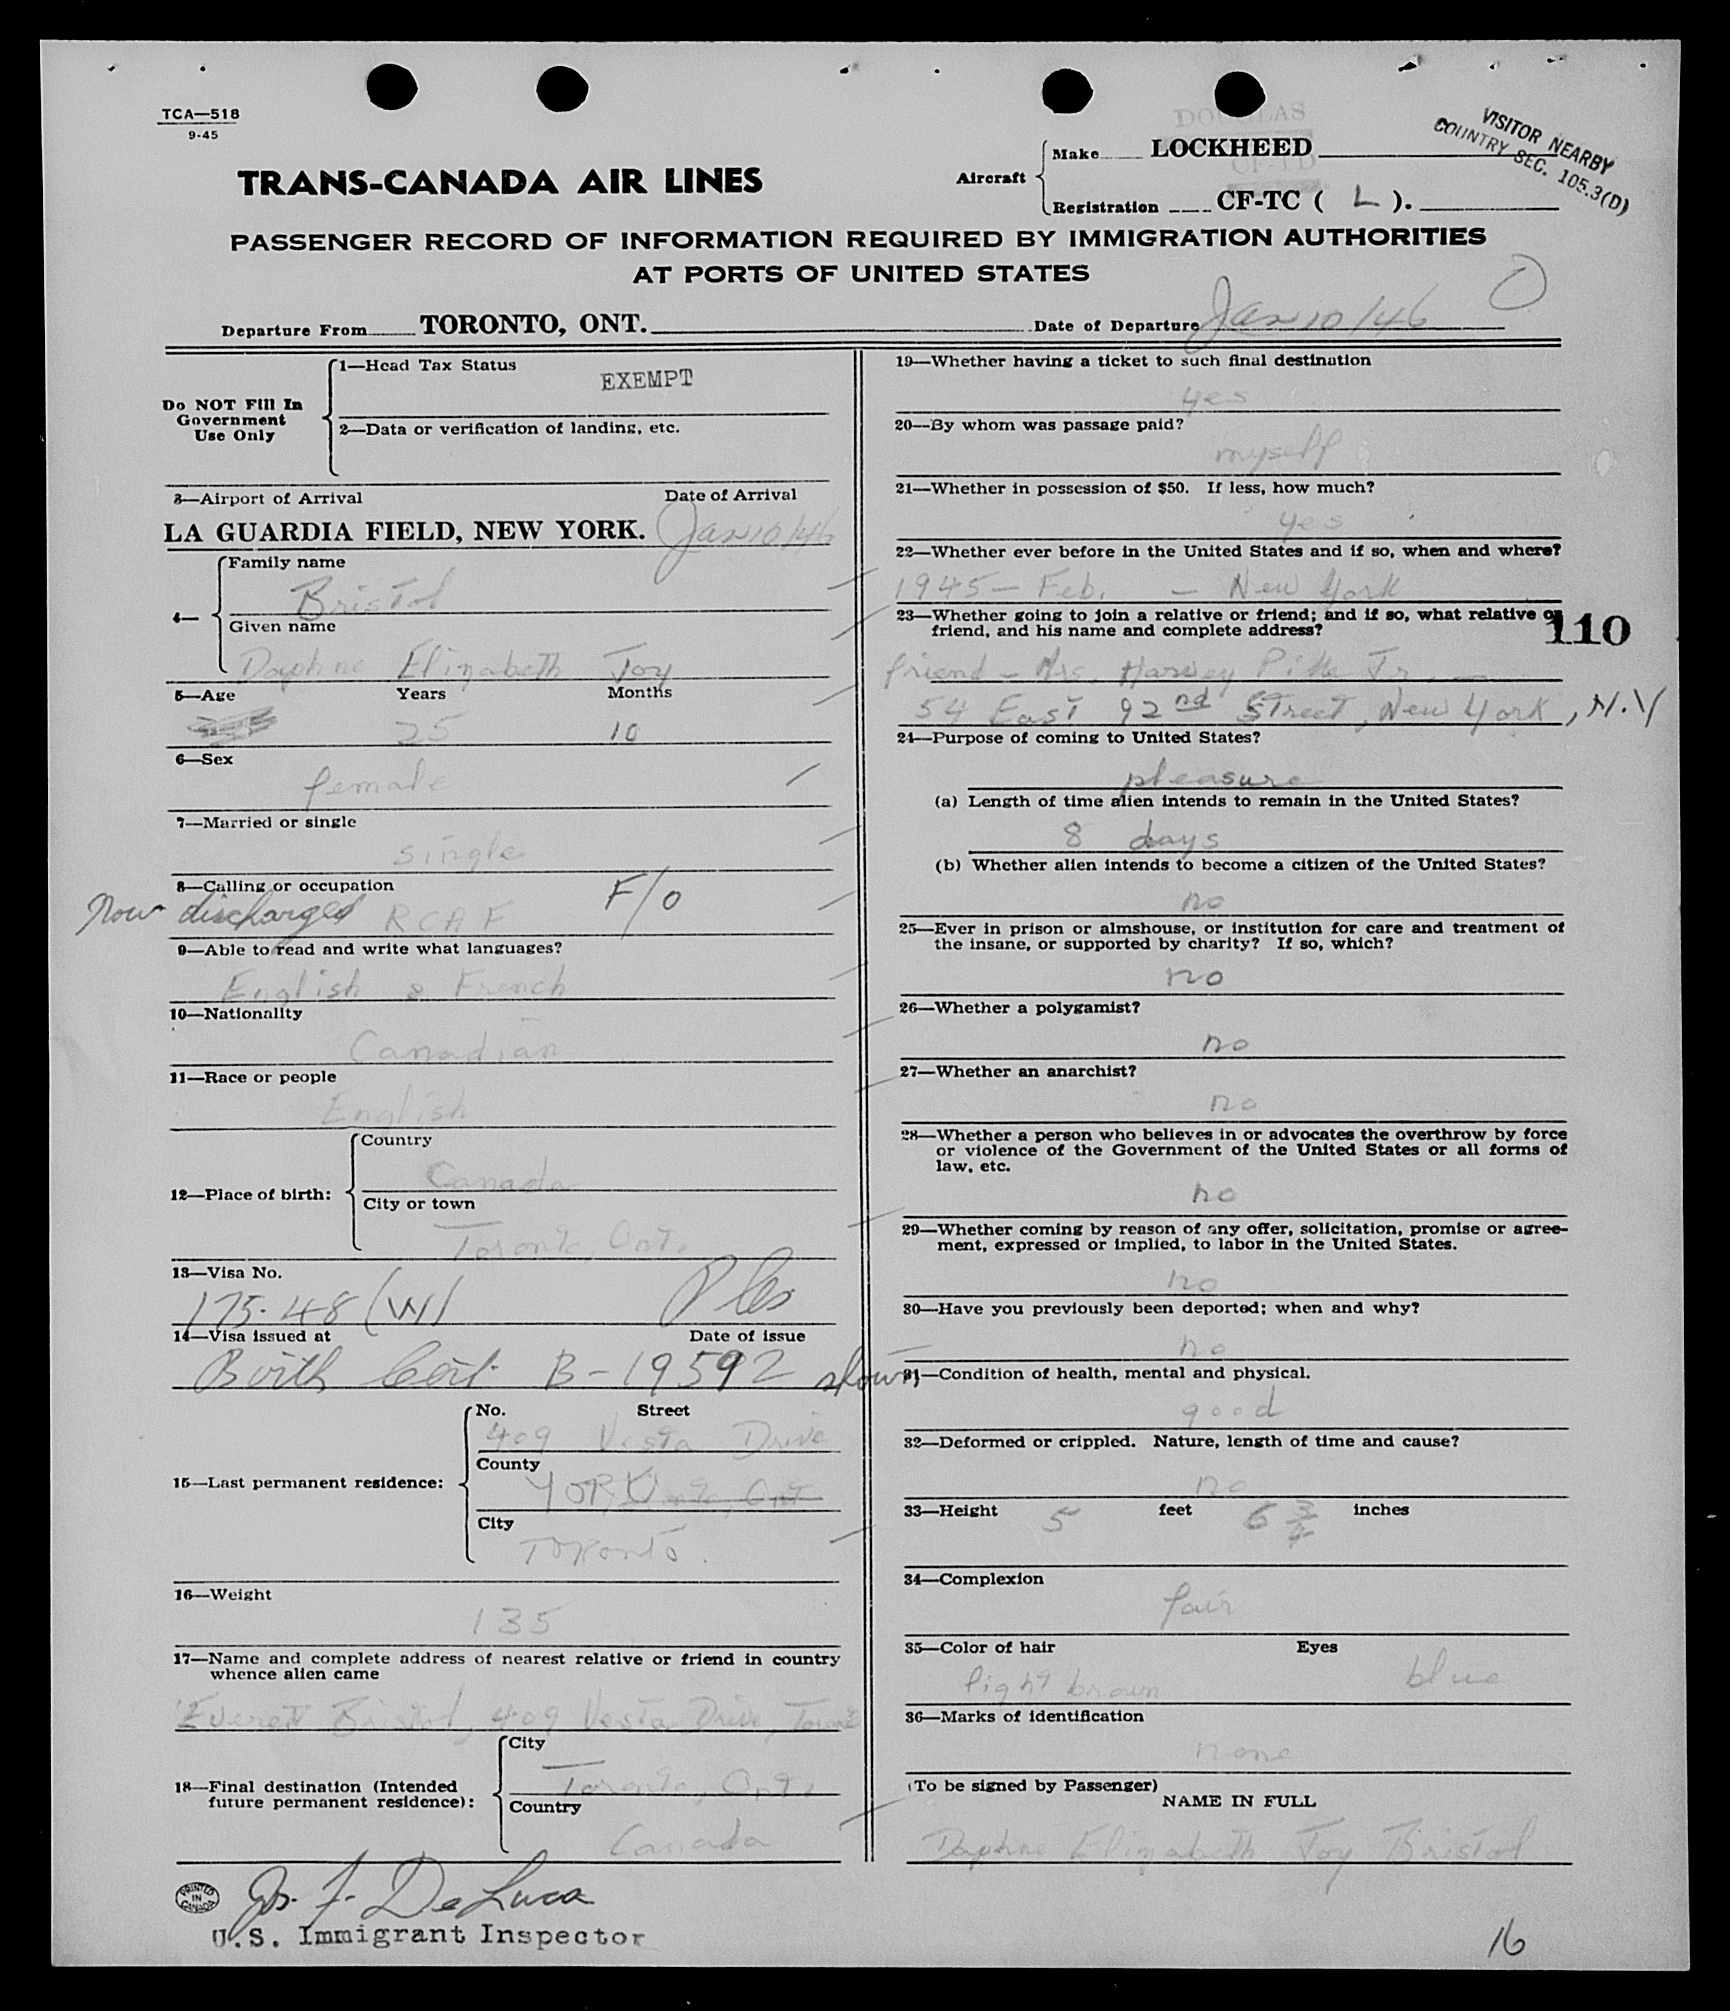 TCA—518
9-45
DOUGLAS
CF-TD
VISITOR NEARBY
COUNTRY SEC. 105.3(D)
TRANS-CANADA AIR LINES
Aircraft
Make LOCKHEED
Registration CF-TC ( L ).
PASSENGER RECORD OF INFORMATION REQUIRED BY IMMIGRATION AUTHORITIES
AT PORTS OF UNITED STATES
Departure From TORONTO, ONT. Date of Departure Jan 10/46
Do NOT Fill In
Government
Use Only
1—Head Tax Status
EXEMPT
2—Data or verification of landing, etc.
3—Airport of Arrival Date of Arrival
LA GUARDIA FIELD, NEW YORK. Jan 10/46
4— Family name
Bristol
Given name
Daphne Elizabeth Joy
5—Age Years Months
25 10
6—Sex
female
7—Married or single
single
8—Calling or occupation F/O
Now discharged RCAF
9—Able to read and write what languages?
English & French
10—Nationality
Canadian
11—Race or people
English
12—Place of birth:
Country
Canada
City or town
Toronto, Ont.
13—Visa No.
175.48 (W)
14—Visa issued at Date of issue
Birth Cert. B-19592 shown
15—Last permanent residence:
No. Street
409 Vesta Drive
County
YORK
City
Toronto.
16—Weight
135
17—Name and complete address of nearest relative or friend in country
whence alien came
Everett Bristol, 409 Vesta Drive, Toronto
18—Final destination (Intended
future permanent residence):
City
Toronto, Ont.
Country
Canada
Jos. F. DeLuca
PRINTED IN CANADA
U.S. Immigrant Inspector
19—Whether having a ticket to such final destination
yes
20—By whom was passage paid?
myself
21—Whether in possession of $50. If less, how much?
yes
22—Whether ever before in the United States and if so, when and where?
1945 — Feb. — New York
23—Whether going to join a relative or friend; and if so, what relative or
friend, and his name and complete address?
110
friend — Mrs. Harvey Jr. —
54 East 92nd Street, New York, N.Y
24—Purpose of coming to United States?
pleasure
(a) Length of time alien intends to remain in the United States?
8 days
(b) Whether alien intends to become a citizen of the United States?
no
25—Ever in prison or almshouse, or institution for care and treatment of
the insane, or supported by charity? If so, which?
no
26—Whether a polygamist?
no
27—Whether an anarchist?
no
28—Whether a person who believes in or advocates the overthrow by force
or violence of the Government of the United States or all forms of
law, etc.
no
29—Whether coming by reason of any offer, solicitation, promise or agree-
ment, expressed or implied, to labor in the United States.
no
30—Have you previously been deported; when and why?
no
31—Condition of health, mental and physical.
good
32—Deformed or crippled. Nature, length of time and cause?
no
33—Height 5 feet 6 3/4 inches
34—Complexion
fair
35—Color of hair Eyes
light brown blue
36—Marks of identification
none
(To be signed by Passenger)
NAME IN FULL
Daphne Elizabeth Joy Bristol
16